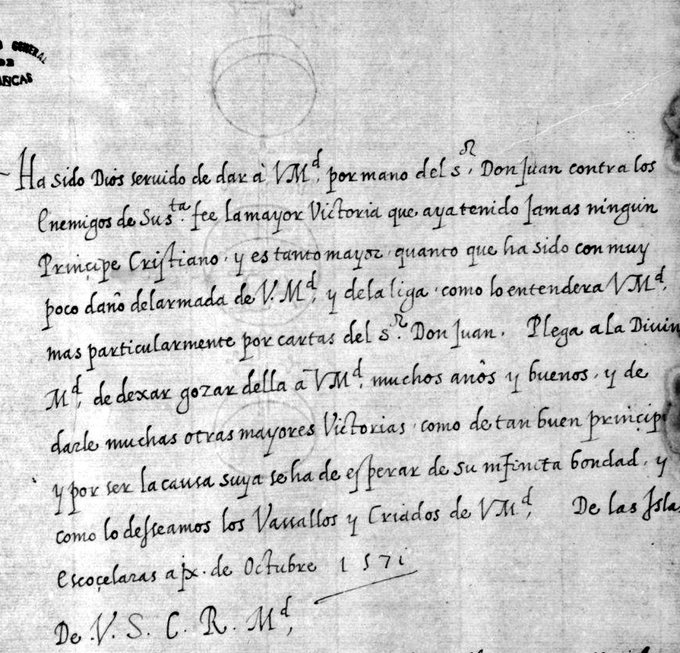 GENERAL
DE
ANCAS
Ha sido Dios seruido de dar à VMd, por mano del sor. Don Juan contra los
Enemigos de Su sta. fee la mayor Victoria que aya tenido Jamas ningun
Prinçipe Cristiano. y es tanto mayor. quanto que ha sido con muy
poco daño del armada de V.Md, y de la liga. como lo entendera VMd.
mas particularmente por cartas del sor. Don Juan. Plega a la Diuin
Md, de dexar gozar della à VMd, muchos años y buenos. y de
darle muchas otras mayores Victorias. como de tan buen prinçipi
y por ser la causa suya se ha de esperar de su infinita bondad. y
como lo desseamos los Vassallos y Criados de VMd, De las Islas
Escoçelaras a ix. de Octubre 1571
De .V. S. C. R. Md,